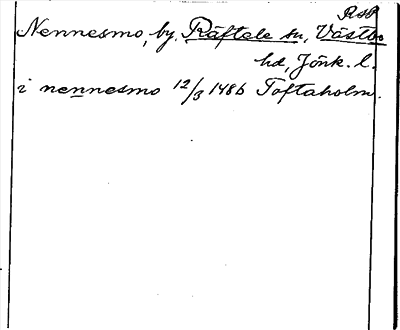 RSP
Nennesmo, by, Råftele sn, Västbo
hd, Jönk. l.
i nennesmo 12/3 1486 Toftaholm.